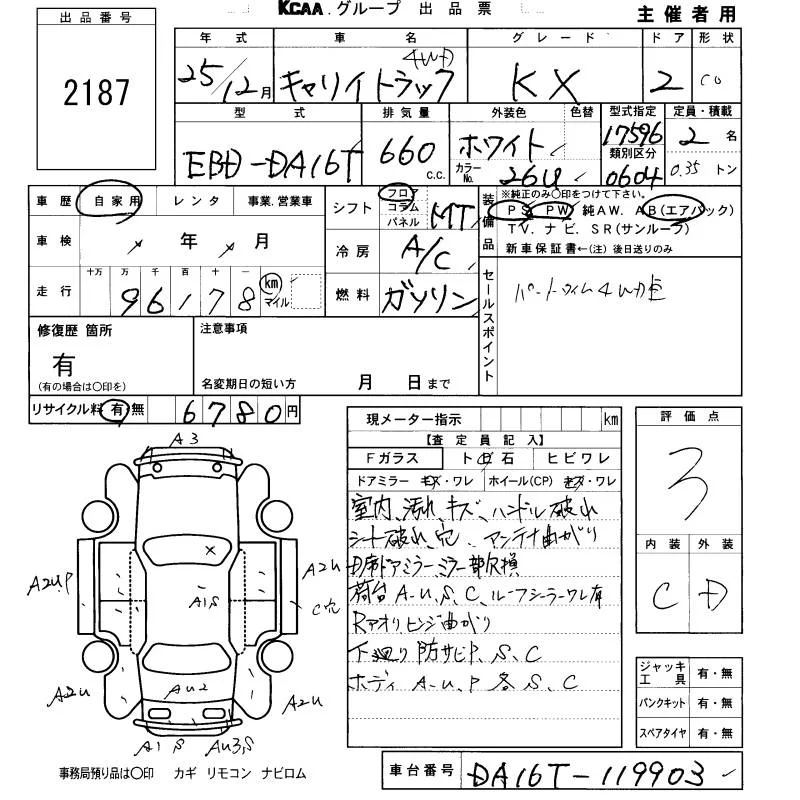 KCAA.グループ 出品票
主催者用
出品番号
2187
年式 車名 グレード ドア 形状
25/12月 キャリイトラック 4WD KX 2 CO
型式 排気量 外装色 色替 型式指定 定員・積載
EBD-DA16T 660 c.c. ホワイト 17596 2名
カラーNo. 26U 類別区分 0604 0.35トン
車歴 自家用 レンタ 事業.営業車
シフト フロア コラム パネル MT
装備品 ※純正のみ〇印をつけて下さい。
PS PW 純AW. AB(エアバック)
TV. ナビ. SR(サンルーフ)
新車保証書←(注) 後日送りのみ
車検 年 月
冷房 A/C
走行 十万 万 千 百 十 一 km マイル
96178
燃料 ガソリン
セールスポイント
パートタイム4WD車
修復歴 箇所
有
(有の場合は〇印を)
注意事項
名変期日の短い方 月 日まで
リサイクル料 有・無 6780円
現メーター指示 km
【査定員記入】
Fガラス 卜ビ石 ヒビワレ
ドアミラー キズ・ワレ ホイール(CP) キズ・ワレ
室内、汚れ、キズ、ハンドル破れ
シート破れ、穴、アンテナ曲がり
D席ドアミラーミラー部欠損
荷台 A-U,S,C、ルーフシーラーワレ有
Rアオリヒンジ曲がり
下廻り 防サビP、S、C
ボディ A-U,P 各S、C
評価点
3
内装 外装
C D
ジャッキ工具 有・無
パンクキット 有・無
スペアタイヤ 有・無
A3
A2UP
A2U
C穴
A1S
A2U
AU2
A2U
A1S
AU3,S
事務局預り品は〇印 カギ リモコン ナビロム
車台番号 DA16T-119903